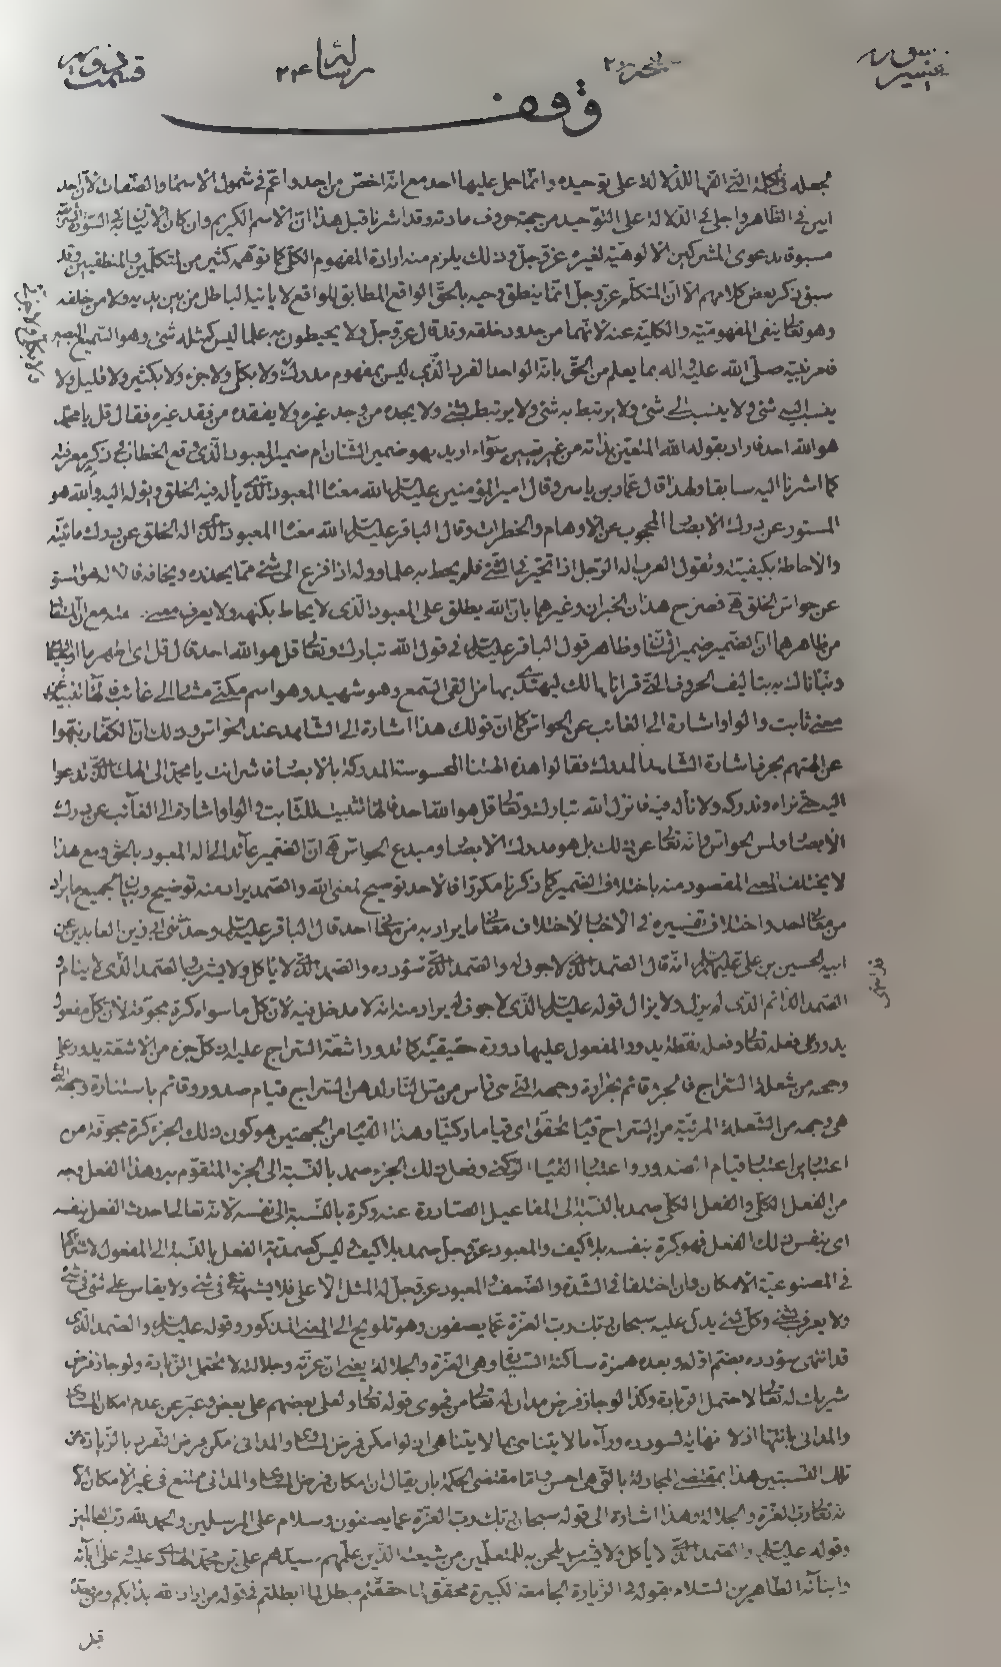 رسالة ٢٣٤
وقف
فجعله في الكلمة التي القها للدلالة على توحيده وانما حمل عليها احد مع انه اخص من واحد واعم في شمول الاسماء والصفات لأن احد
في الظاهر واجلى في الدلالة على التوحيد من جهة حروف مادته وقد اشرنا قبل هذا ان الاسم الكريم وان كان الاتيان به في السورة
مسبوقا بدعوى المشركين الالوهية لغيره عز وجل وذلك يلزم منه ارادة المفهوم الكلي كما توهمه كثير من المتكلمين والمنطقيين وقد
سبق ذكر بعض كلامهم الا ان المتكلم عز وجل انما ينطق وحيه بالحق الواقع المطابق للواقع لا يأتيه الباطل من بين يديه ولا من خلفه
وهو تعالى ينفى المفهومية والكلية عنه لانهما من حدود خلقه وقد قال عز وجل ولا يحيطون به علما ليس كمثله شئ وهو السميع البصير
فامر نبيه صلى الله عليه واله بما يعلم من الحق بانه الواحد الفرد الذي ليس بمفهوم مدرك ولا بكل ولا جزء ولا بكثير ولا قليل ولا
ينسب اليه شئ ولا ينسب الى شئ ولا يرتبط به شئ ولا يرتبط بشئ ولا يجده من وجد غيره ولا يفقده من فقد غيره فقال قل يا محمد
هو الله احد فاراد بقوله الله المتعين بذاته من غير تعيين سواء اريد بهو ضمير الشان ام ضمير المعبود الذي وقع الخطاب في ذكر معرفته
كما اشرنا اليه سابقا ولهذا قال عمار بن ياسر وقال امير المؤمنين عليه السلام الله معناه المعبود الذي يأله فيه الخلق ويوله اليه والله هو
المستور عن درك الابصار المحجوب عن الاوهام والخطرات وقال الباقر عليه السلام الله معناه المعبود الذي اله الخلق عن درك مائيته
والاحاطة بكيفيته وتقول العرب اله الرجل اذا تحير في الشئ فلم يحط به علما ووله اذا فزع الى شئ مما يحذره ويخافه فالاله هو المستور
عن حواس الخلق هـ فصرح هذان الخبران وغيرهما بان الله يطلق على المعبود الذي لا يحاط بكنهه ولا يعرف
من ظاهرهما ان الضمير ضمير الشان وظاهر قول الباقر عليه السلام في قول الله تبارك وتعالى قل هو الله احد قال قل اي اظهر ما اوحينا
ونبأناك به بتأليف الحروف التي قرأناها لك ليهتدي بها من القى السمع وهو شهيد وهو اسم مكنى مشار الى غائب فالهاء تنبيه عن
معنى ثابت والواو اشارة الى الغائب عن الحواس كما ان قولك هذا اشارة الى الشاهد عند الحواس وذلك ان الكفار نبهوا
عن الهتهم بحرف اشارة الشاهد المدرك فقالوا هذه الهتنا المحسوسة المدركة بالابصار فاشر انت يا محمد الى الهك الذي تدعوا
اليه حتى نراه وندركه ولا نأله فيه فانزل الله تبارك وتعالى قل هو الله احد فالهاء تثبيت للثابت والواو اشارة الى الغائب عن درك
الابصار ولمس الحواس وانه تعالى عن ذلك بل هو مدرك الابصار ومبدع الحواس هـ ان الضمير عائد الى اله المعبود بالحق ومع هذا
لا يختلف المعنى المقصود منه باختلاف الضمير كما ذكرنا مكررا فالاحد توضيح لمعنى الله والصمد يراد منه توضيح وبيان لجميع ما يراد
من معنى احد واختلاف تفسيره في الاخبار لاختلاف معاني ما يراد به من معنى احد قال الباقر عليه السلام وحدثني ابي زين العابدين عن
ابيه الحسين بن علي عليهم السلام انه قال الصمد الذي لا جوف له والصمد الذي قد انتهى سؤدده والصمد الذي لا يأكل ولا يشرب والصمد الذي لا ينام و
الصمد الدائم الذي لم يزل ولا يزال قوله عليه السلام الذي لا جوف له يراد منه انه لا مدخل فيه لان كل ما سواه كرة مجوفة لأن كل مفعول
يدور على فعله تعالى وفعله نقطة يدور المفعول عليها دورة حقيقية كما تدور اشعة السراج عليه لان كل جزء من الاشعة يدور على
وجهه من شعلة السراج فالجزء قائم بحرارة وجهه التي هي من مس النار لدهن السراج قيام صدور وقائم باستنارة وجهه التي
هي وجهه من الشعلة المرئية من السراج قياما تحققيا اي قياما ركنيا وهذا القيام من الجهتين هو كون ذلك الجزء كرة مجوفة من
اعتبارين اعتبار قيام الصدور واعتبار القيام الركني وفعل ذلك الجزء صمد بالنسبة الى الجزء المتقوم به وهذا الفعل وجه
من الفعل الكلي والفعل الكلي صمد بالنسبة الى المفاعيل الصادرة عنه وكرة بالنسبة الى نفسه لانه تعالى احدث الفعل بنفسه
اي بنفس ذلك الفعل فهو كرة بنفسه بلا كيف والمعبود عز وجل صمد بلا كيف ليس كصمدية الفعل بالنسبة الى المفعول لاشتراكهما
في المصنوعية والامكان وان اختلفا في الشدة والضعف والمعبود عز وجل له المثل الاعلى فلا يشبهه شئ في شئ ولا يقاس على شئ في شئ
ولا يعرف بشئ وكل شئ يدل عليه سبحان ربك رب العزة عما يصفون وهو تلويح الى المعنى المذكور وقوله عليه السلام والصمد الذي
قد انتهى سؤدده بضم اوله وبعده همزة ساكنة السيادة وهي العزة والجلالة يعني ان عزته وجلالته لا تحتمل الزيادة ولو جاز فرض
شريك له تعالى لاحتمل الزيادة وكذا لو جاز فرض مدان له تعالى من فحوى قوله تعالى ولعلى بعضهم على بعض فعبر عن عدم امكان المساوي
والمداني بانتها اذ لا نهاية لسؤدده وراء ما لا يتناهى بما لا يتناهى اذ لو امكن فرض المساوي والمداني امكن فرض التفرد بالزيادة عن
تلك النسبتين هذا بمقتضى المجادلة بالتي هي احسن واما مقتضى الحكمة بان يقال ان امكان فرض المساوي والمداني ممتنع في غير الامكان لا
نه تعالى رب العزة والجلالة وهذا اشارة الى قوله سبحان ربك رب العزة عما يصفون وسلام على المرسلين والحمد لله رب العالمين
وقوله عليه السلام والصمد الذي لا يأكل ولا يشرب يلحن به للمتعلمين من شيعته الذين علمهم سيدهم علي بن محمد الهادي عليه وعلى ابائه
وابنائه الطاهرين السلام بقوله في الزيارة الجامعة الكبيرة محقق لما حققتم مبطل لما ابطلتم في قوله من اراد الله بدأ بكم ومن وحده
قبل